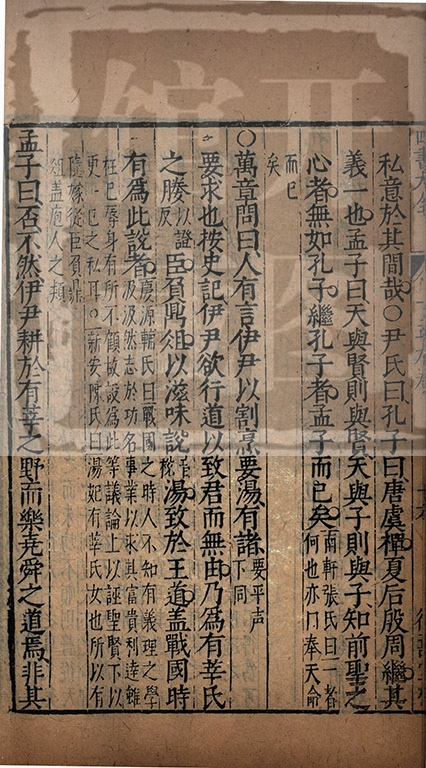 私意於其間哉○尹氏曰孔子曰唐虞禪夏后殷周繼其
義一也孟子曰天與賢則與賢天與子則與子知前聖之
心者無如孔子繼孔子者孟子而已矣南軒張氏曰一者何也亦曰奉天命
而已矣
○萬章問曰人有言伊尹以割烹要湯有諸要平聲下同
要求也按史記伊尹欲行道以致君而無由乃爲有莘氏
之媵以證反臣負鼎俎以滋味說湯致於王道蓋戰國時
有爲此說者慶源輔氏曰戰國之時人不知有義理之學汲汲然志於功名事業以求其富貴利達雖
枉已辱身有所不顧故設爲此等議論上以誣聖賢下以更一已之私耳○新安陳氏曰湯妃有莘氏女也所以有
媵嫁從臣負鼎俎蓋庖人之類
孟子曰否不然伊尹耕於有莘之野而樂堯舜之道焉非其